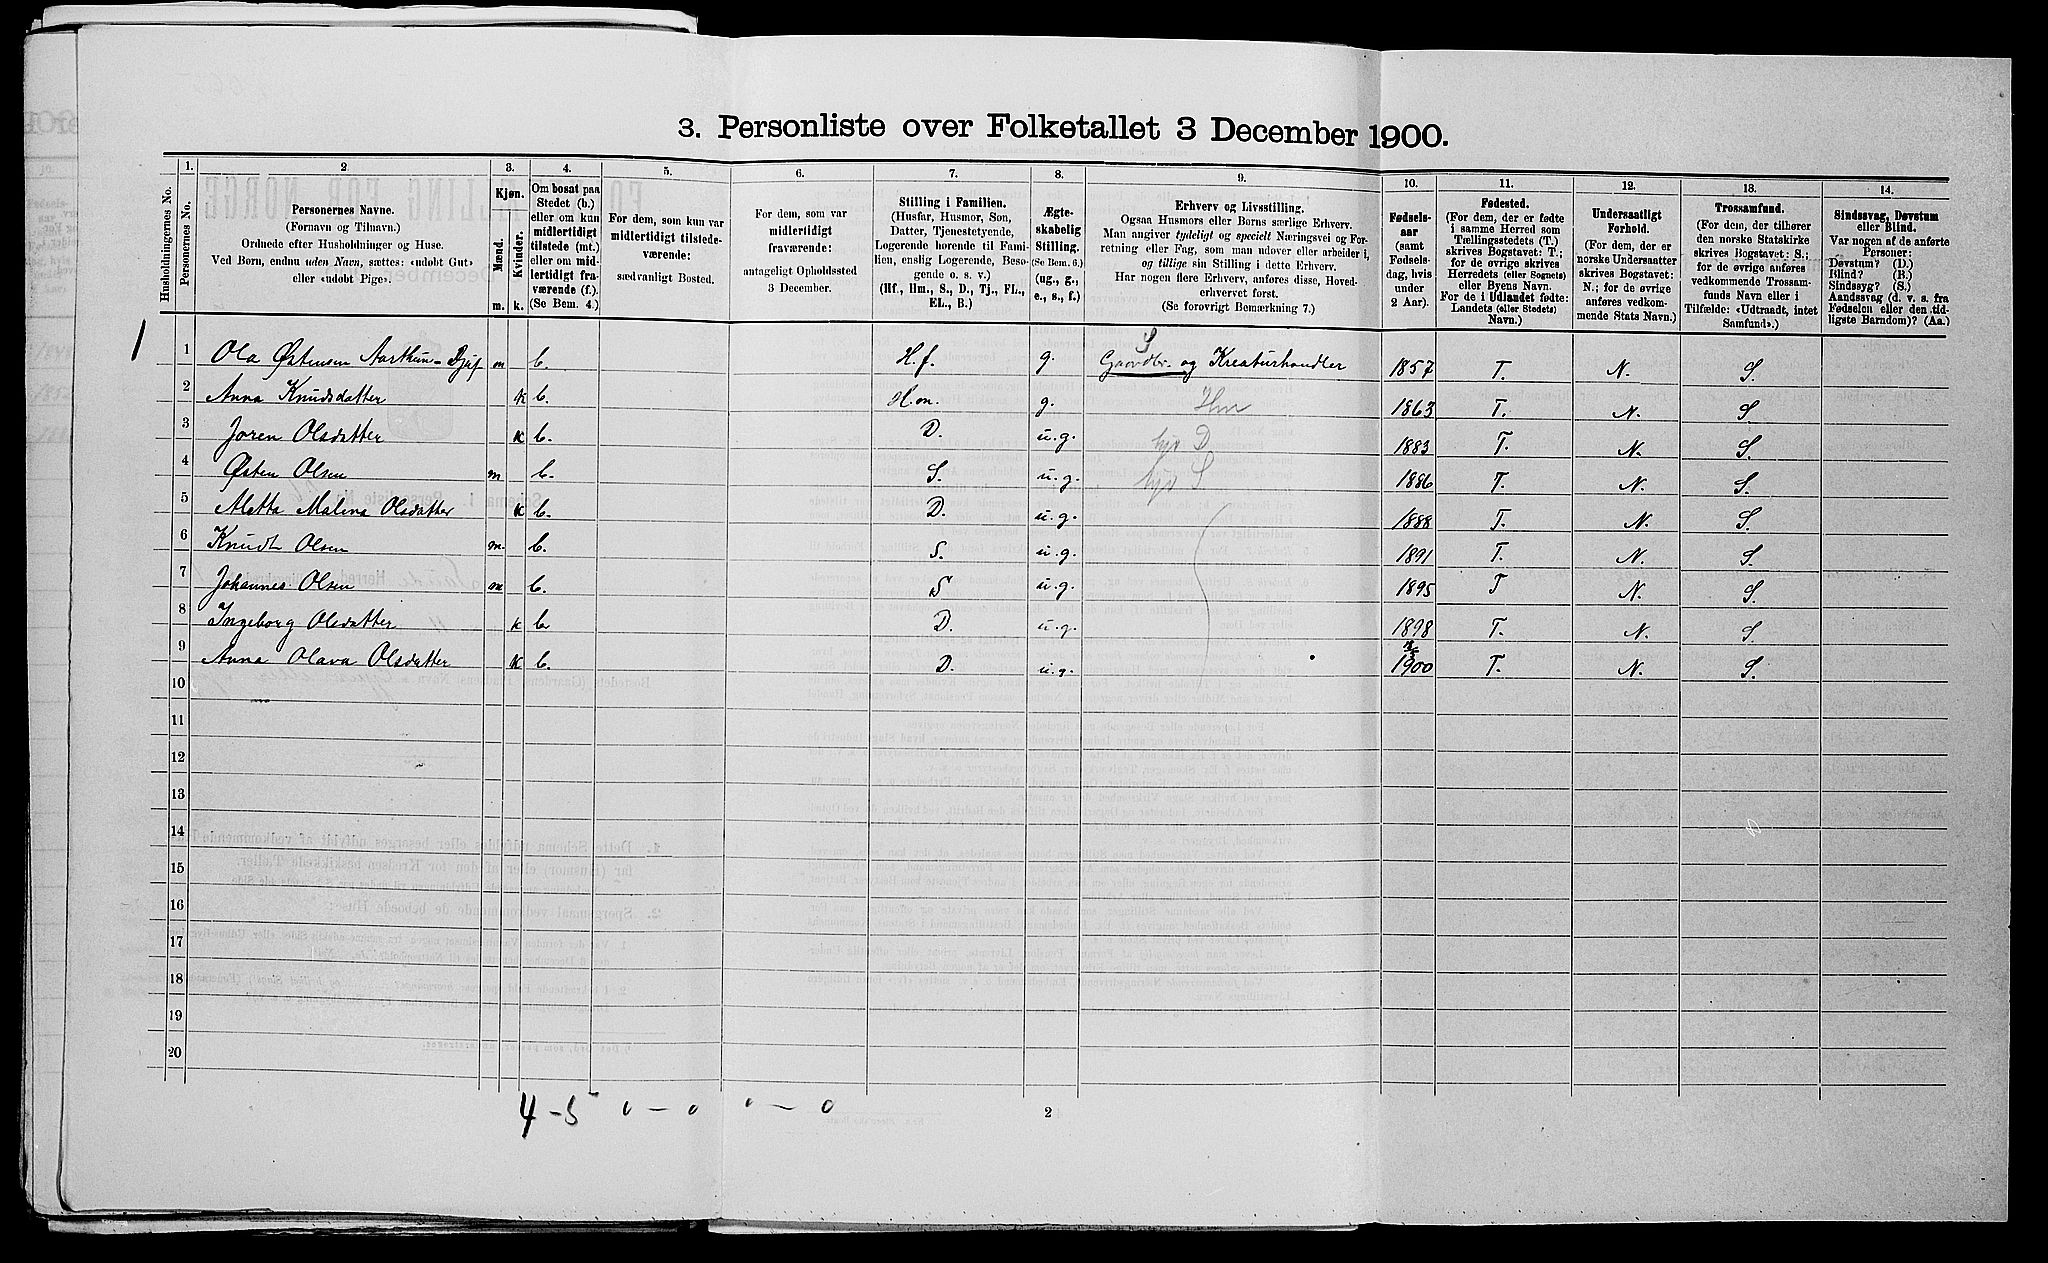 3. Personliste over Folketallet 3 December 1900.
Husholdningernes No.
1.
Personernes No.
2
Personernes Navne.
(Fornavn og Tilnavn.)
Ordnede efter Husholdninger og Huse.
Ved Børn, endnu uden Navn, sættes: «udøbt Gut»
eller «udøbt Pige».
3.
Kjøn.
Mænd.
Kvinder.
m. k.
4.
Om bosat paa
Stedet (b.)
eller om kun
midlertidigt
tilstede (mt.)
eller om mid-
lertidigt fra-
værende (f.).
(Se Bem. 4.)
5.
For dem, som kun var
midlertidigt tilstede-
værende:
sædvanligt Bosted.
6.
For dem, som var
midlertidigt
fraværende:
antageligt Opholdssted
3 December.
7.
Stilling i Familien.
(Husfar, Husmor, Søn,
Datter, Tjenestetyende,
Logerende hørende til Fami-
lien, enslig Logerende, Besø-
gende o. s. v.)
(Hf., Hm., S., D., Tj., FL.,
EL., B.)
8.
Ægte-
skabelig
Stilling.
(Se Bem. 6.)
(ug., g.,
e., s., f.)
9.
Erhverv og Livsstilling.
Ogsaa Husmors eller Børns særlige Erhverv.
Man angiver tydeligt og specielt Næringsvei og For-
retning eller Fag, som man udøver eller arbeider i,
og tillige sin Stilling i dette Erhverv.
Har nogen flere Erhverv, anføres disse, Hoved-
erhvervet først.
(Se forøvrigt Bemærkning 7.)
10.
Fødsels-
aar
(samt
Fødsels-
dag, hvis
under
2 Aar).
11.
Fødested.
(For dem, der er fødte
i samme Herred som
Tællingsstedets (T.)
skrives Bogstavet: T.;
for de øvrige skrives
Herredets (eller Sognets)
eller Byens Navn.
For de i Udlandet fødte:
Landets (eller Stedets)
Navn.)
12.
Undersaatligt
Forhold.
(For dem, der er
norske Undersaatter
skrives Bogstavet:
N.; for de øvrige
anføres vedkom-
mende Stats Navn.)
13.
Trossamfund.
(For dem, der tilhører
den norske Statskirke
skrives Bogstavet: S.;
for de øvrige anføres
vedkommende Trossam-
funds Navn eller i
Tilfælde: «Udtraadt, intet
Samfund».)
14.
Sindssvag, Døvstum
eller Blind.
Var nogen af de anførte
Personer:
Døvstum? (D.)
Blind? (B.)
Sindssyg? (S.)
Aandssvag (d. v. s. fra
Fødselen eller den tid-
ligste Barndom)? (Aa.)
S
1 1 Ola Østensen Aarthun-Djuf m b. H.f. g. Gaardbr. og Kreaturhandler 1857 T. N. S.
2 Anna Knudsdatter k b. H.m. g. Hm 1863 T. N. S.
3 Joren Olsdatter k b. D. u.g. hjv D 1883 T. N. S.
4 Østen Olsen m b. S. u.g. hjv S 1886 T. N. S.
5 Aletta Malena Olsdatter k b. D. u.g. 1888 T. N. S.
6 Knudt Olsen m. b. S. u.g. 1891 T. N. S.
7 Johannes Olsen m b. S u.g. 1895 T N. S.
8 Ingeborg Olsdatter k b. D. u.g. 1898 T. N. S.
9 Anna Olava Olsdatter k b. D. u.g. 1900 T. N. S.
10
11
12
13
14
15
16
17
18
19
20
4 – 5 0 – 0 0 – 0
2